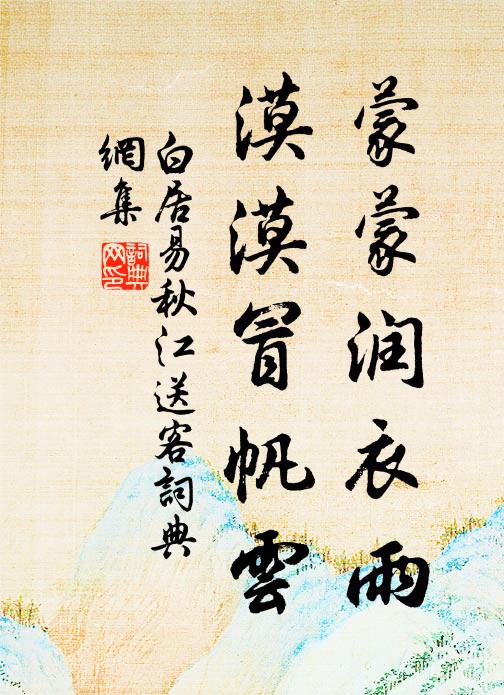 蒙蒙润衣雨
漠漠冒帆雲
白居易秋江送客詞典
網集
詞典网印